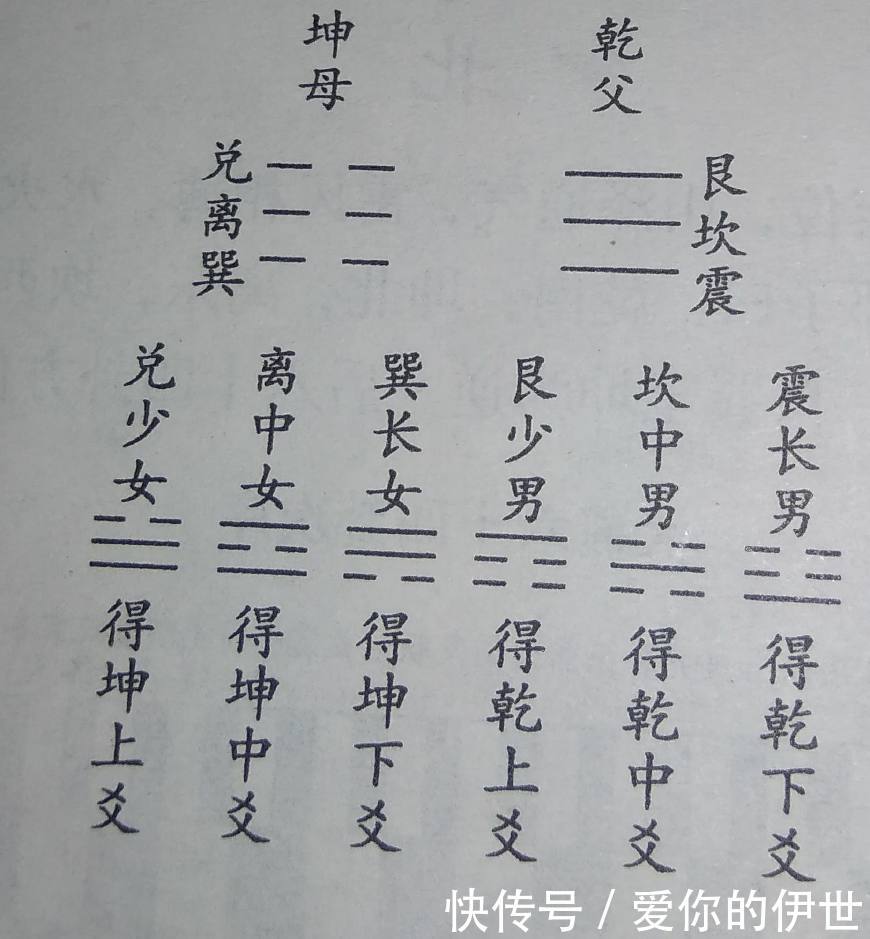 乾父
坤母
艮坎震
兑离巽
震长男
坎中男
艮少男
巽长女
离中女
兑少女
得乾下爻
得乾中爻
得乾上爻
得坤下爻
得坤中爻
得坤上爻
快传号 / 爱你的伊世